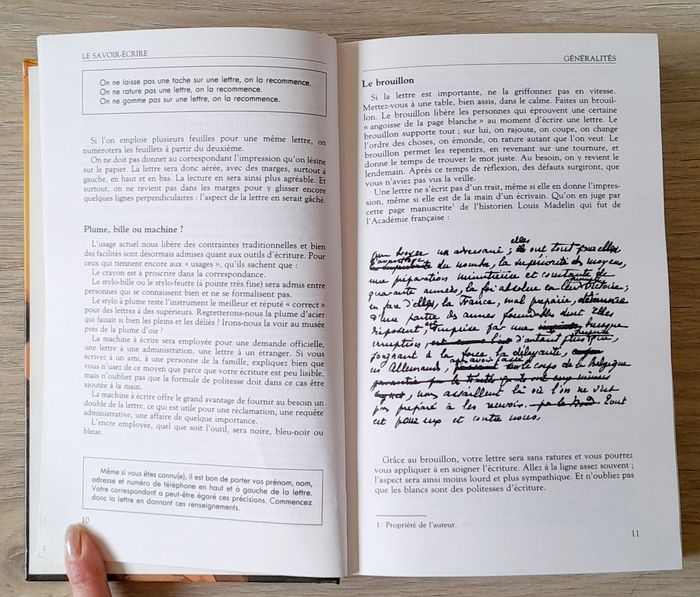 LE SAVOIR-ÉCRIRE
On ne laisse pas une tache sur une lettre, on la recommence.
On ne rature pas une lettre, on la recommence.
On ne gomme pas sur une lettre, on la recommence.
Si l'on emploie plusieurs feuilles pour une même lettre, on
numérotera les feuilles à partir du deuxième.
On ne doit pas donner au correspondant l'impression qu'on lésine
sur le papier. La lettre sera donc aérée, avec des marges, surtout à
gauche, en haut et en bas. La lecture en sera ainsi plus agréable. Et
surtout, on ne revient pas dans les marges pour y glisser encore
quelques lignes perpendiculaires : l'aspect de la lettre en serait gâché.
Plume, bille ou machine ?
L'usage actuel nous libère des contraintes traditionnelles et bien
des facilités sont désormais admises quant aux outils d'écriture. Pour
ceux qui tiennent encore aux « usages », qu'ils sachent que :
Le crayon est à proscrire dans la correspondance.
Le stylo-bille ou le stylo-feutre (à pointe très fine) sera admis entre
personnes qui se connaissent bien et ne se formalisent pas.
Le stylo à plume reste l'instrument le meilleur et réputé « correct »
pour des lettres à des supérieurs. Regretterons-nous la plume d'acier
qui faisait si bien les pleins et les déliés ? Irons-nous la voir au musée
près de la plume d'oie ?
La machine à écrire sera employée pour une demande officielle,
une lettre à une administration, une lettre à un étranger. Si vous
écrivez à un ami, à une personne de la famille, expliquez bien que
vous n'usez de ce moyen que parce que votre écriture est peu lisible,
mais n'oubliez pas que la formule de politesse doit dans ce cas être
ajoutée à la main.
La machine à écrire offre le grand avantage de fournir au besoin un
double de la lettre, ce qui est utile pour une réclamation, une requête
administrative, une affaire de quelque importance.
L'encre employée, quel que soit l'outil, sera noire, bleu-noir ou
bleue.
Même si vous êtes connu(e), il est bon de porter vos prénom, nom,
adresse et numéro de téléphone en haut et à gauche de la lettre.
Votre correspondant a peut-être égaré ces précisions. Commencez
donc la lettre en donnant ces renseignements.
10
GÉNÉRALITÉS
Le brouillon
Si la lettre est importante, ne la griffonnez pas en vitesse.
Mettez-vous à une table, bien assis, dans le calme. Faites un brouil-
lon. Le brouillon libère les personnes qui éprouvent une certaine
« angoisse de la page blanche » au moment d'écrire une lettre. Le
brouillon supporte tout ; sur lui, on rajoute, on coupe, on change
l'ordre des choses, on émonde, on rature autant que l'on veut. Le
brouillon permet les repentirs, en revenant sur une tournure, et
donne le temps de trouver le mot juste. Au besoin, on y revient le
lendemain. Après ce temps de réflexion, des défauts surgiront, que
vous n'aviez pas vus la veille.
Une lettre ne s'écrit pas d'un trait, même si elle en donne l'impres-
sion, même si elle est de la main d'un écrivain. Qu'on en juge par
cette page manuscrite¹ de l'historien Louis Madelin qui fut de
l'Académie française :
elles
un adversaire ; ont tout pour elles
du nombre, la supériorité des moyens,
une préparation minutieuse et constante de
quarante années, la foi absolue en la victoire ;
en face d'elles, la France, mal préparée,
d'une partie des armes formidables dont elles
disposent par une brusque
irruption,
joignant à la force la déloyauté,
les Allemands, sur le corps de la Belgique
nous assaillent là où l'on ne s'est
pas préparé à les recevoir. Tout
est pour eux et contre nous.
Grâce au brouillon, votre lettre sera sans ratures et vous pourrez
vous appliquer à en soigner l'écriture. Allez à la ligne assez souvent ;
l'aspect sera ainsi moins lourd et plus sympathique. Et n'oubliez pas
que les blancs sont des politesses d'écriture.
1. Propriété de l'auteur.
11